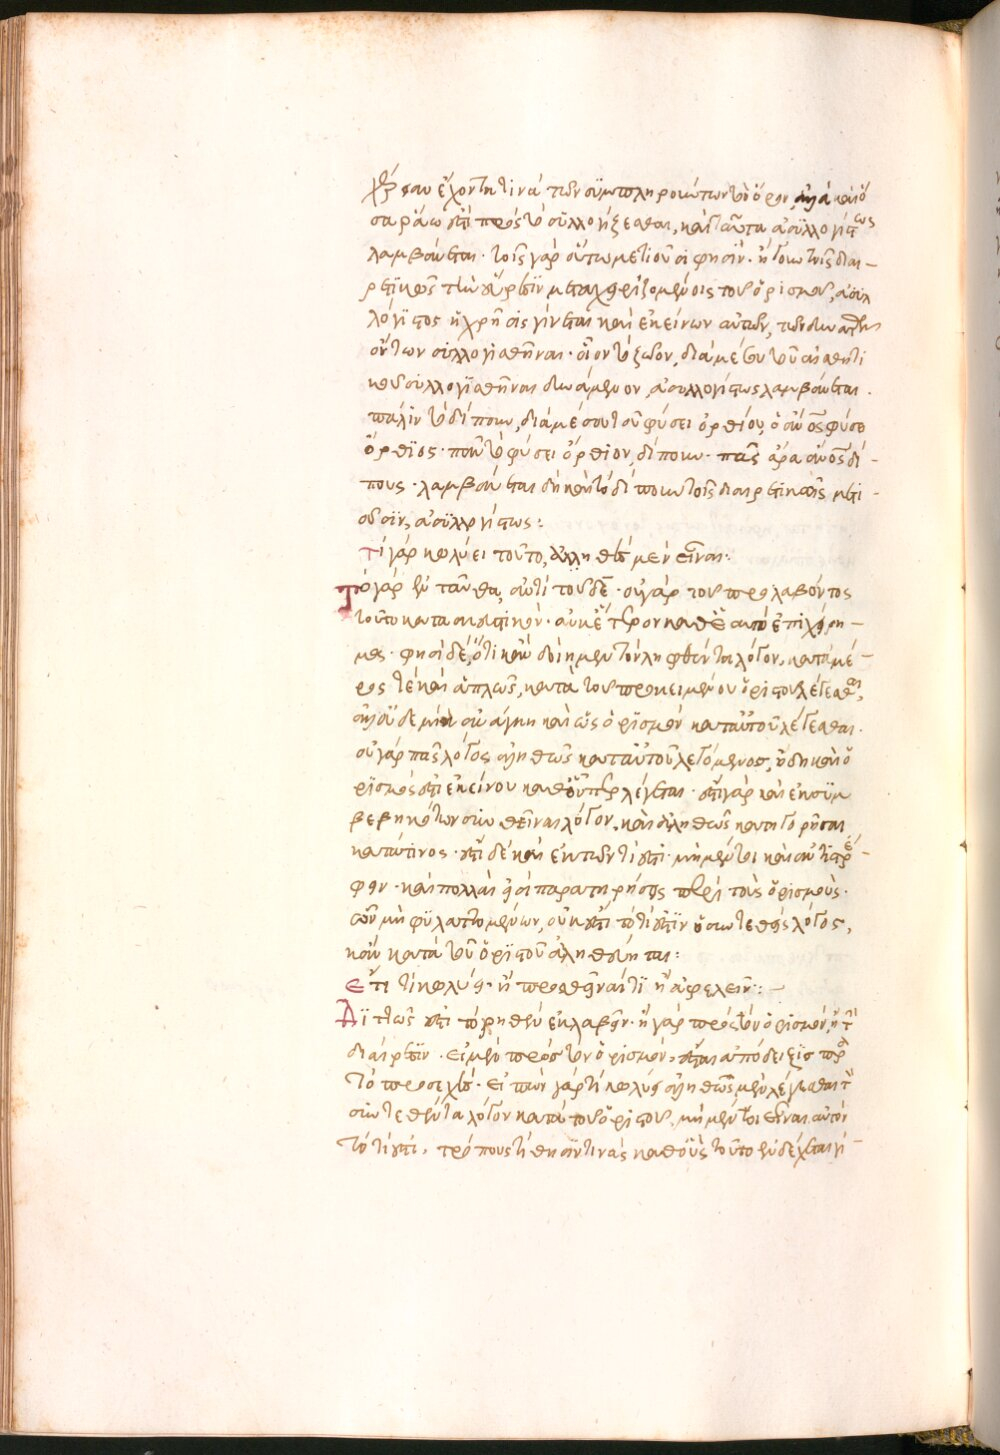 χθεῖσαν ἔχοντη τινὰ τῶν συμπληρωνόντων τὸν ὅρον, ἀλλὰ καὶ ὅ
σα ῥάω ἐστὶ πρὸς τὸ συλλογίζεσθαι, καὶ ταῦτα ἀσυλλογίστως
λαμβάνεται. τοῖς γὰρ οὕτω μετιοῦσι φησὶν. ἤγουν τοῖς διαι-
ρετικῶς τὴν εὕρεσιν μεταχειριζομένοις τοῦ ὁρισμοῦ, ἀσυλ
λόγιστος ἡ χρῆσις γίνεται καὶ ἐκείνων αὐτῶν, τῶν δυναμένων
ὄντων συλλογισθῆναι. οἷον τὸ ζῶον, διὰ μέσου τοῦ αἰσθητι
κοῦ συλλογισθῆναι δυνάμενον, ἀσυλλογίστως λαμβάνεται.
πάλιν τὸ δίπουν, διὰ μέσου τοῦ φύσει ὀρθίου, ὁ ἄνος φύσει
ὄρθιος. πᾶν τὸ φύσει ὄρθιον, δίπουν. πᾶς ἄρα ἄνος δί-
πους. λαμβάνεται δὴ καὶ τὸ δίπουν τοῖς διαιρετικοῖς μετι-
οῦσιν, ἀσυλλογίστως:
τί γὰρ κωλύει τοῦτο, ἀληθὲς μὲν εἶναι:
Τὸ γὰρ ἐνταῦθα, ἀντὶ τοῦ δέ. οὐ γὰρ τοῦ προλαβόντος
τοῦτο κατασκευαστικὸν. ἀλλ' ἕτερον καθ' ἑαυτὸ ἐπιχείρη-
μα. φησὶ δέ, ὅτι κἂν δοίημεν τὸν ληφθέντα λόγον, κατὰ μέ-
ρος τὲ καὶ ἁπλῶς, κατὰ τοῦ προκειμένου ὁριστοῦ λέγεσθαι,
ἀλλ' οὐδεμία ἀνάγκη καὶ ὡς ὁρισμὸν κατ' αὐτοῦ λέγεσθαι.
οὐ γὰρ πᾶς λόγος ἀληθῶς κατ' αὐτοῦ λεγόμενος, ἤδη καὶ ὁ
ρισμός ἐστι ἐκείνου καθ' οὗπερ λέγεται. ἔστι γὰρ καὶ ἐκ συμ
βεβηκότων συνθεῖναι λόγον, καὶ ἀληθῶς κατηγορῆσαι
κατά τινος. ἔστι δὲ καὶ ἐκ τῶν τί ἐστι. μὴ μέντοι καὶ ἀντιστρέ-
φειν. καὶ πολλαὶ εἰσὶ παρατηρήσεις περὶ τοὺς ὁρισμοὺς.
ὧν μὴ φυλαττομένων, οὐκ ἔστι τὸ τί ἐστιν ὁ συντεθεὶς λόγος,
κἂν κατὰ τοῦ ὁριστοῦ ἀληθεύηται:
Ἔτι τί κωλύει. ἢ προσθεῖναί τι ἢ ἀφελεῖν:-
Διττῶς ἐστι τὸ ῥηθὲν ἐκλαβεῖν. ἢ γὰρ πρὸς τὸν ὁρισμόν, ἢ τὴν
διαίρεσιν. εἰ μὲν πρὸς τὸν ὁρισμόν, ἔσται ἀπόδειξις πρὸς
τὸ προσεχές. εἰπὼν γὰρ τί κωλύει ἀληθῶς μὲν λέγεσθαι τὸν
συντεθέντα λόγον κατὰ τοῦ ὁριστοῦ, μὴ μέντοι εἶναι αὐτὸν
τὸ τί ἐστι, τρόπους τίθησιν τινὰς καθ' οὓς τοῦτο ἐνδέχεται γί-